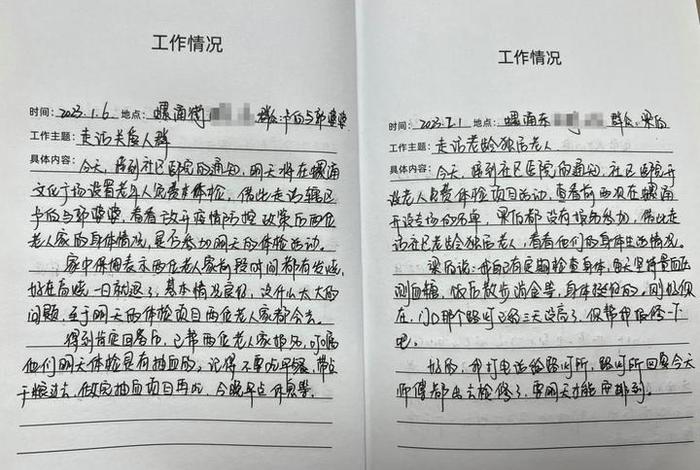 工作情况
时间：2023.1.6 地点：螺涌街 群众：卡伯与郭婆婆
工作主题：走访关爱人群
具体内容：今天，接到社区医院的通知，明天将在螺涌
文化广场设置老年人免费体检，借此走访辖区
卡伯与郭婆婆，看看放开疫情防控政策后两位
老人家的身体情况，是否参加明天的体检活动。
家中保姆表示两位老人家前段时间都有发烧，
好在高烧一日就退了，基本情况良好，没什么太大的
问题，至于明天的体检项目两位老人家都会去。
得到肯定回答后，已帮两位老人家报名，叮嘱
他们明天体检是有抽血的，记得不要吃早餐，带点
干粮过去，做完抽血项目再吃，今晚早点休息等。
工作情况
时间：2023.2.1 地点：螺涌东 群众：梁伯
工作主题：走访老龄独居老人
具体内容：今天，接到社区医院的通知，社区医院开
设老人免费体检项目活动，查看前两次在螺涌
开设专场的名单，梁伯都没有报名参加，借此走
访社区老龄独居老人，看看他们的身体生活情况。
梁伯说：我自己有定期检查身体，每天坚持量血压
测血糖，饭后散步消食等，身体挺好的，刚好你
在，门口那个路灯已经三天没亮了，你帮我报修一下
吧。
好的，我打电话给路灯所，路灯所回复今天
师傅都出去检修了，要明天才能安排到。